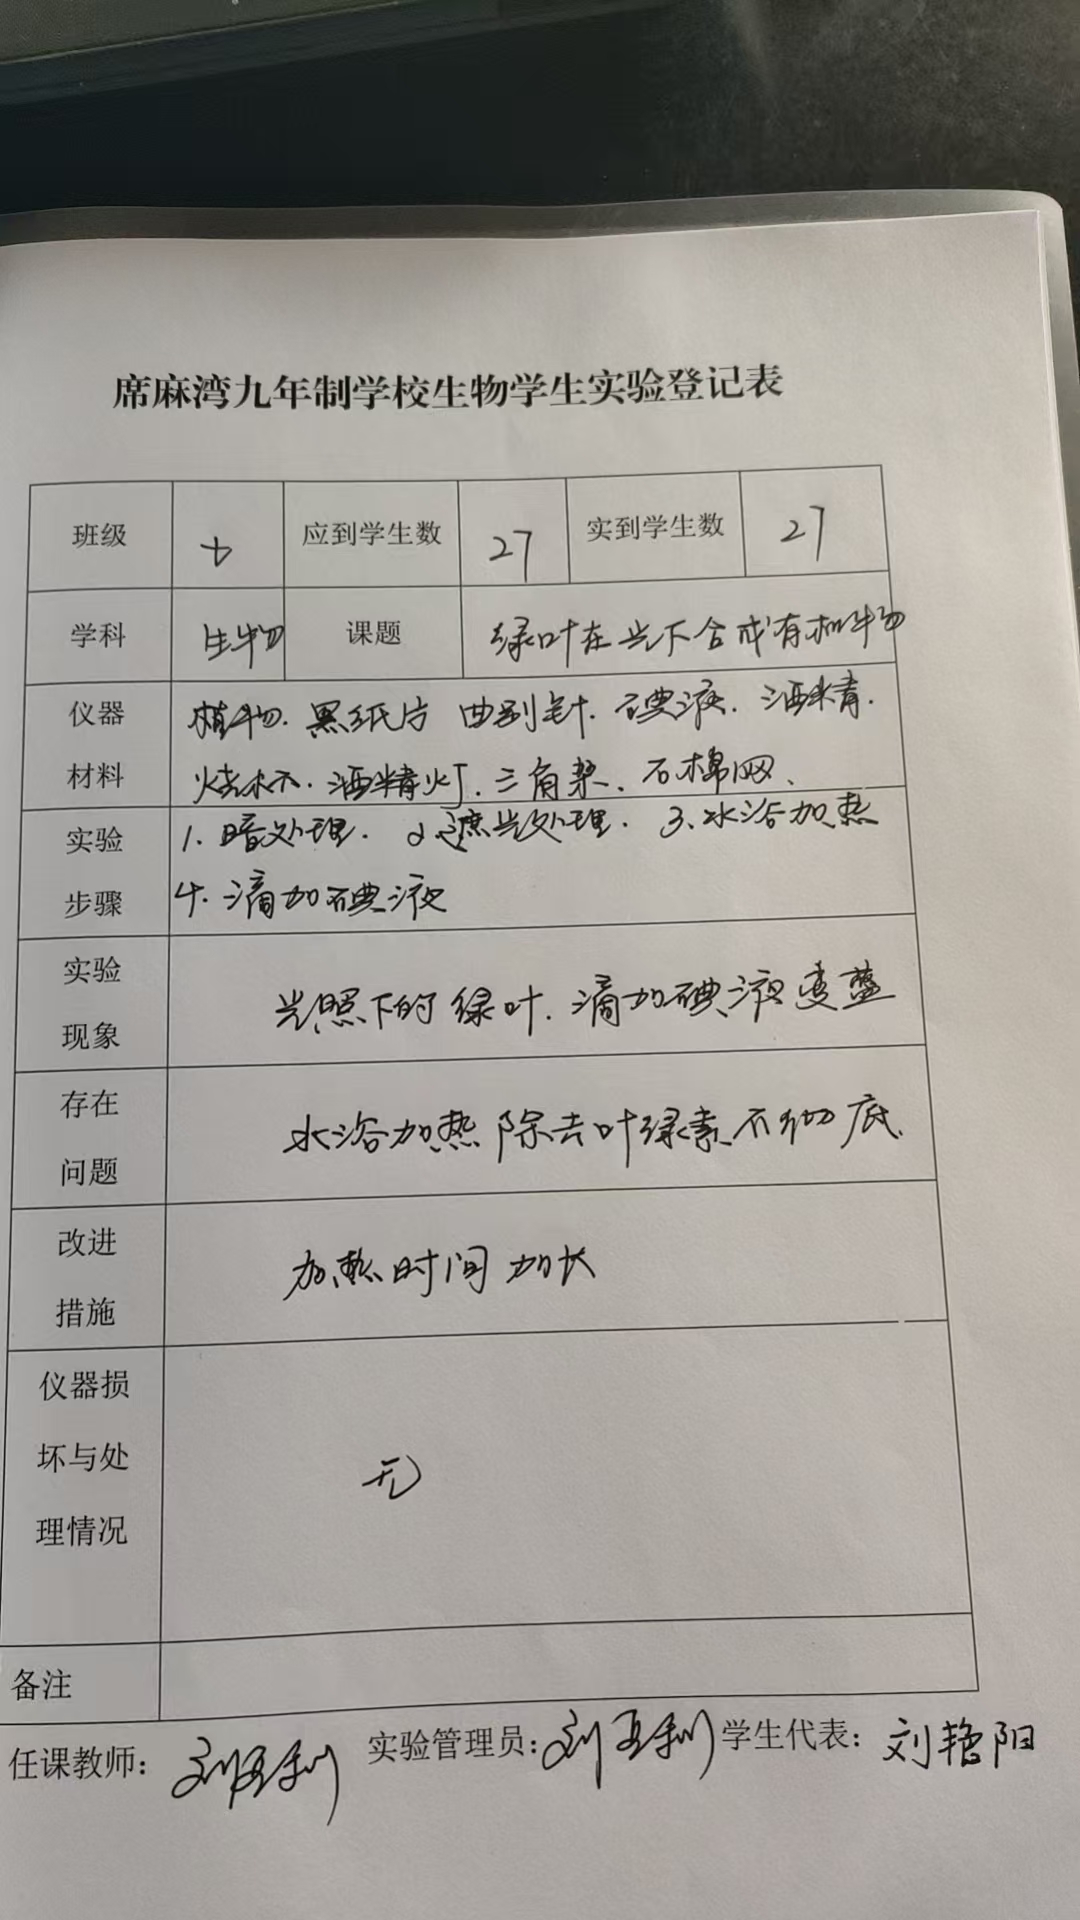 席麻湾九年制学校生物学生实验登记表
班级 七 应到学生数 27 实到学生数 27
学科 生物 课题 绿叶在光下合成有机物
仪器材料 植物. 黑纸片 曲别针. 碘液. 酒精.
烧杯. 酒精灯. 三角架. 石棉网、
实验步骤 1. 暗处理. 2.遮光处理. 3.水浴加热
4. 滴加碘液
实验现象 光照下的绿叶. 滴加碘液变蓝
存在问题 水浴加热除去叶绿素不彻底.
改进措施 加热时间加长
仪器损坏与处理情况 无
备注
任课教师: 实验管理员: 学生代表: 刘艳阳